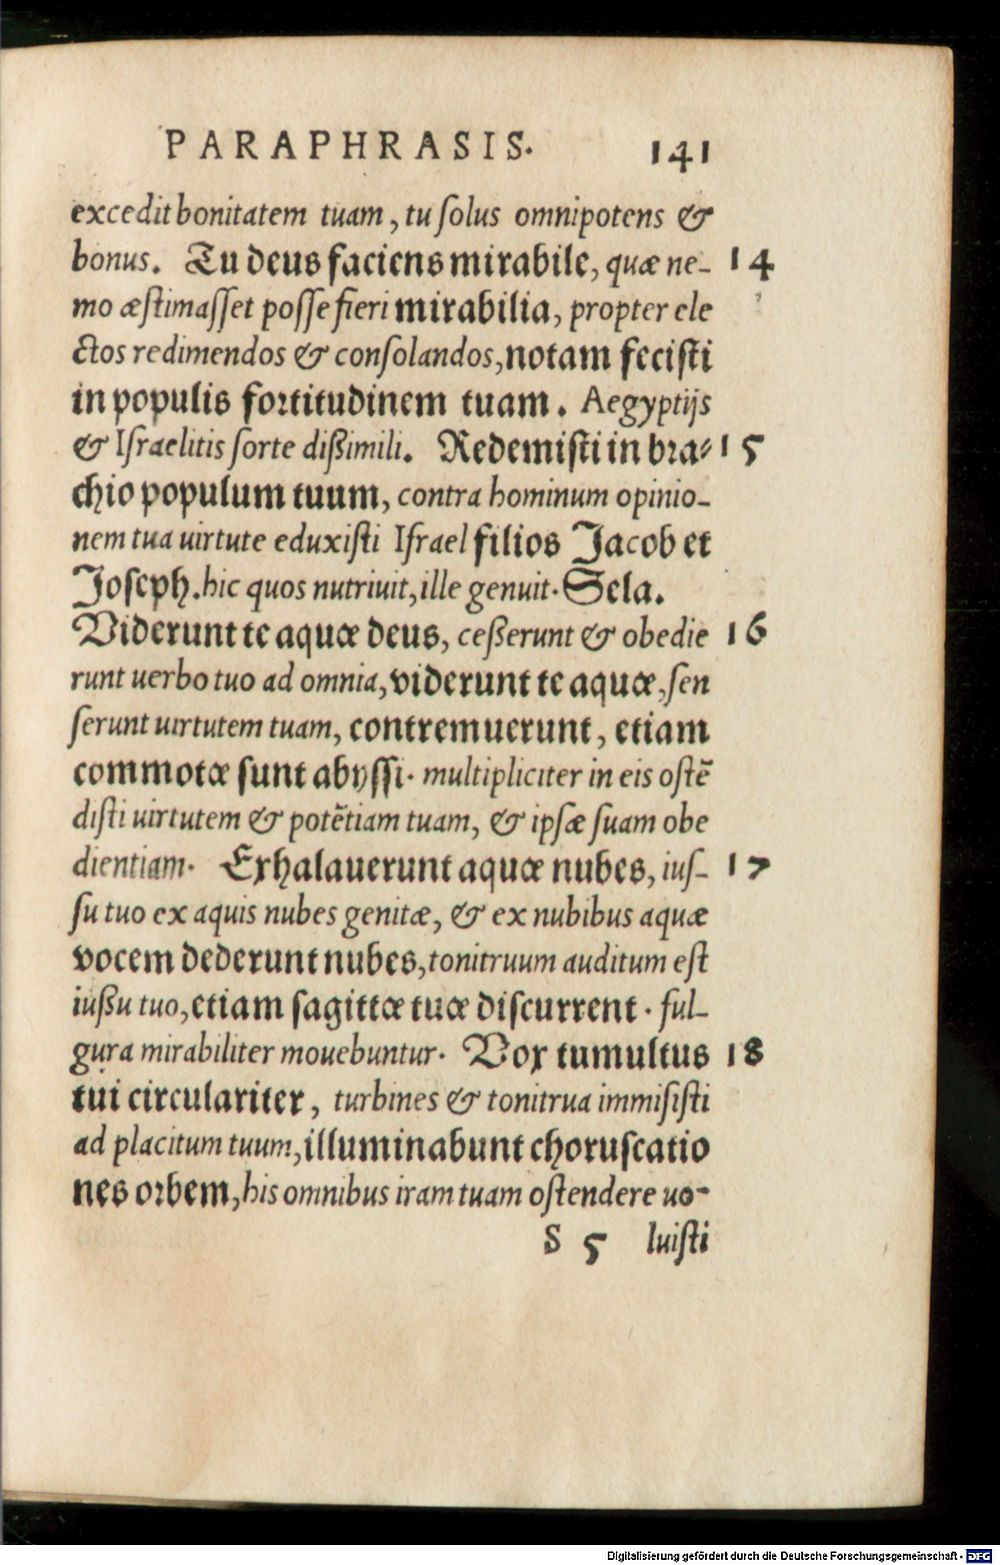 PARAPHRASIS. 141
excedit bonitatem tuam, tu solus omnipotens &
bonus. Tu deus faciens mirabile, quæ ne- 14
mo æstimasset posse fieri mirabilia, propter ele
ctos redimendos & consolandos, notam fecisti
in populis fortitudinem tuam. Aegyptijs
& Israelitis sorte dißimili. Redemisti in bra- 15
chio populum tuum, contra hominum opinio-
nem tua uirtute eduxisti Israel filios Jacob et
Joseph. hic quos nutriuit, ille genuit. Sela.
Viderunt te aquæ deus, ceßerunt & obedie 16
runt uerbo tuo ad omnia, viderunt te aquæ, sen
serunt uirtutem tuam, contremuerunt, etiam
commotæ sunt abyssi. multipliciter in eis ostẽ
disti uirtutem & potẽtiam tuam, & ipsæ suam obe
dientiam. Exhalauerunt aquæ nubes, ius- 17
su tuo ex aquis nubes genitæ, & ex nubibus aquæ
vocem dederunt nubes, tonitruum auditum est
iußu tuo, etiam sagittæ tuæ discurrent. ful-
gura mirabiliter mouebuntur. Vox tumultus 18
tui circulariter, turbines & tonitrua immisisti
ad placitum tuum, illuminabunt choruscatio
nes orbem, his omnibus iram tuam ostendere uo-
S 5 luisti
Digitalisierung gefördert durch die Deutsche Forschungsgemeinschaft - DFG